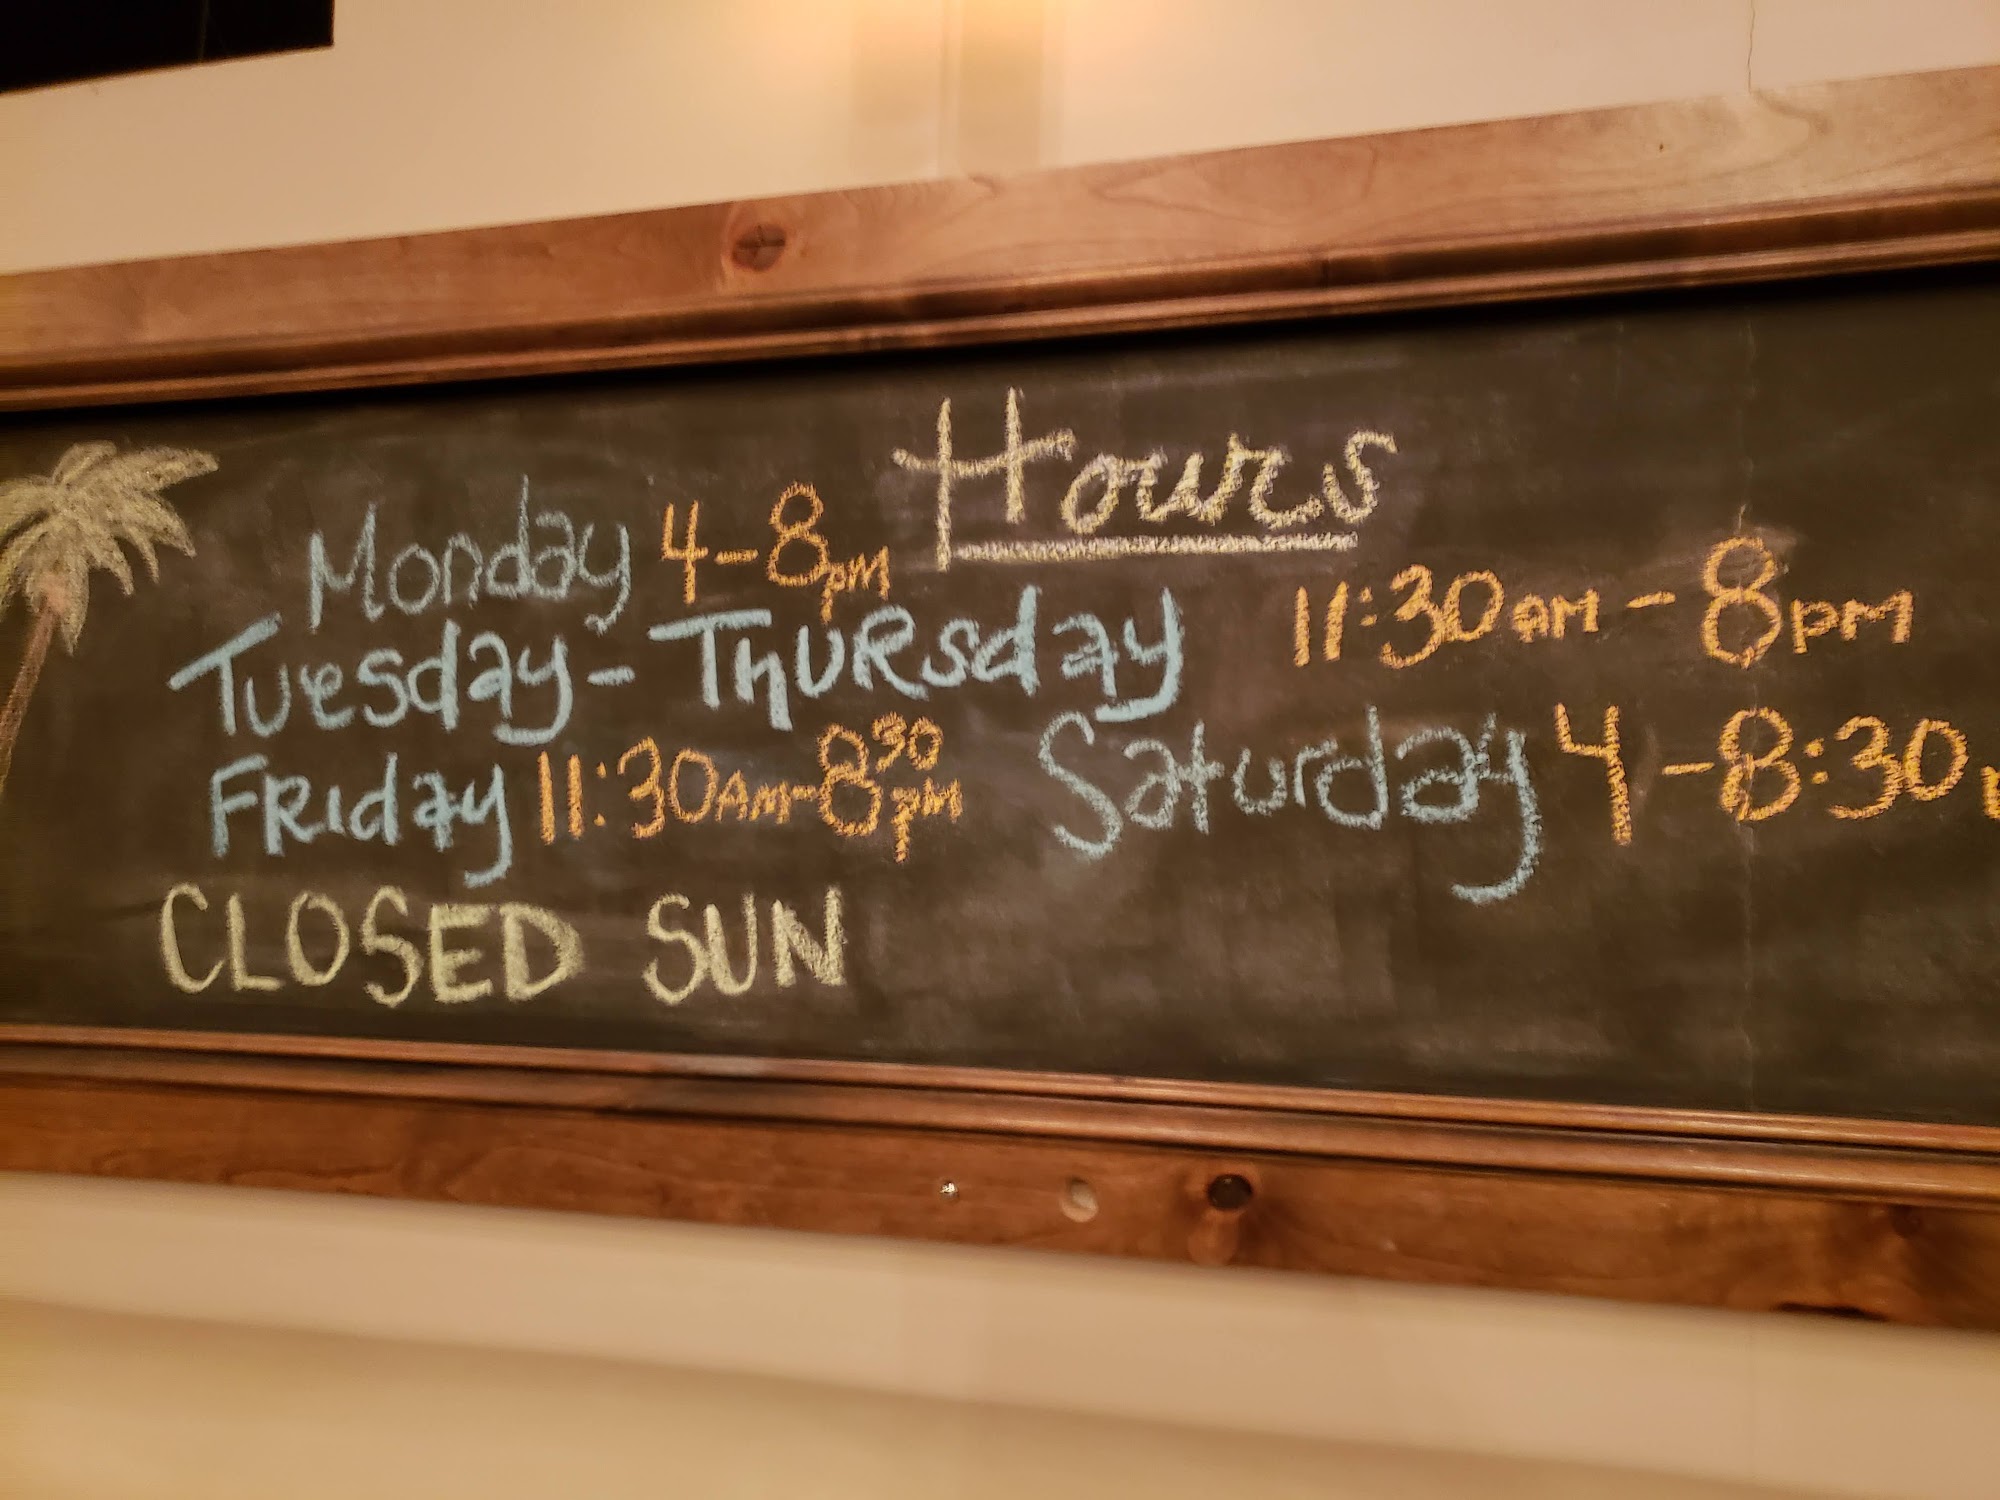 Hours
Monday 4-8pm
Tuesday-Thursday 11:30am-8pm
Friday 11:30AM-8:30pm Saturday 4-8:30
CLOSED SUN